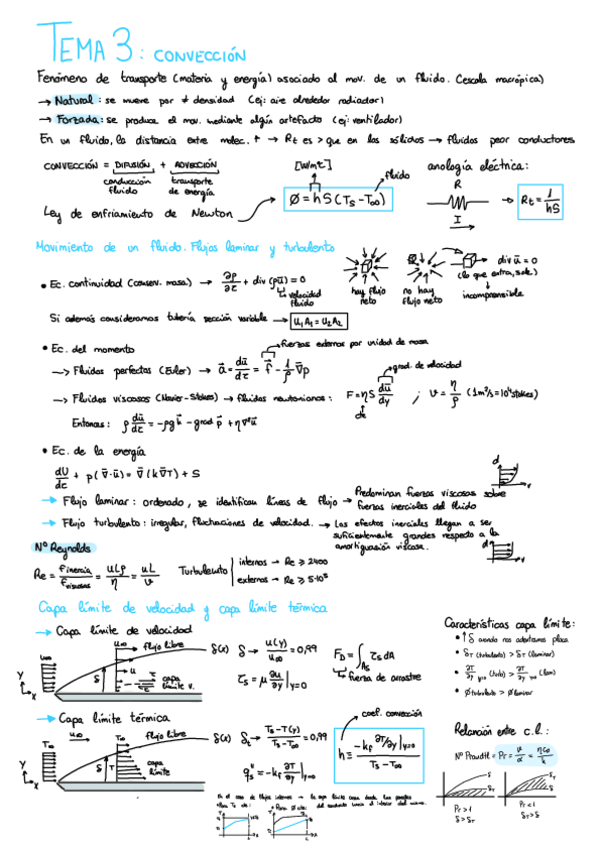 TEMA 3: CONVECCIÓN
Fenómeno de transporte (materia y energía) asociado al mov. de un fluido. (escala macrópica)
→ Natural: se mueve por ≠ densidad (ej: aire alrededor radiador)
→ Forzada: se produce el mov. mediante algún artefacto (ej: ventilador)
En un fluido, la distancia entre molec. ↑ → Rt es > que en los sólidos → fluidos peor conductores
CONVECCIÓN = DIFUSIÓN + ADVECCIÓN
conducción fluido
transporte de energía
[W/m²]
fluido
analogía eléctrica:
R
I
Ley de enfriamiento de Newton
Ø = hS(Ts - T∞)
Rt = 1/hS
Movimiento de un fluido. Flujos laminar y turbulento
• Ec. continuidad (conserv. masa) → ∂ρ/∂τ + div(ρū) = 0
velocidad fluido
hay flujo neto
no hay flujo neto
div ū = 0
(lo que entra, sale)
incompresible
Si además consideramos tubería sección variable → u₁A₁ = u₂A₂
• Ec. del momento
fuerzas externas por unidad de masa
→ Fluidos perfectos (Euler) → ā = dū/dτ = f - 1/ρ ∇p
grad. de velocidad
→ Fluidos viscosos (Navier-Stokes) → fluidos newtonianos: F = ηS du/dy ; ν = η/ρ (1m²/s = 10⁴ stokes)
cte
Entonces: ρ dū/dτ = -ρgk - grad p + η∇²ū
• Ec. de la energía
dU/dτ + p(∇·ū) = ∇(k∇T) + S
→ Flujo laminar: ordenado, se identifican líneas de flujo → Predominan fuerzas viscosas sobre fuerzas inerciales del fluido
→ Flujo turbulento: irregular, fluctuaciones de velocidad. → Los efectos inerciales llegan a ser suficientemente grandes respecto a la amortiguación viscosa.
Nº Reynolds
Re = Finercia/Fviscosas = uLρ/η = uL/ν
Turbulento
internos → Re ≥ 2400
externos → Re ≥ 5·10⁵
Capa límite de velocidad y capa límite térmica
→ Capa límite de velocidad
u∞ flujo libre
δ(x)
δ → u(y)/u∞ = 0,99
τs = μ ∂u/∂y |y=0
FD = ∫As τs dA
fuerza de arrastre
capa límite v.
→ Capa límite térmica
u∞
T∞
flujo libre
δ(x)
δt → Ts - T(y)/Ts - T∞ = 0,99
q"s = -kf ∂T/∂y |y=0
capa límite
coef. convección
h = -kf ∂T/∂y|y=0 / Ts - T∞
Características capa límite:
• ↑δ cuando nos adentramos placa
• δT (turbulento) > δT (laminar)
• ∂T/∂y y=0 (turb) > ∂T/∂y y=0 (lam)
• Ø turbulento > Ø laminar
Relación entre c.l.:
Nº Prandtl = Pr = ν/α = ηcp/k
Pr > 1
δ > δT
Pr < 1
δT > δ